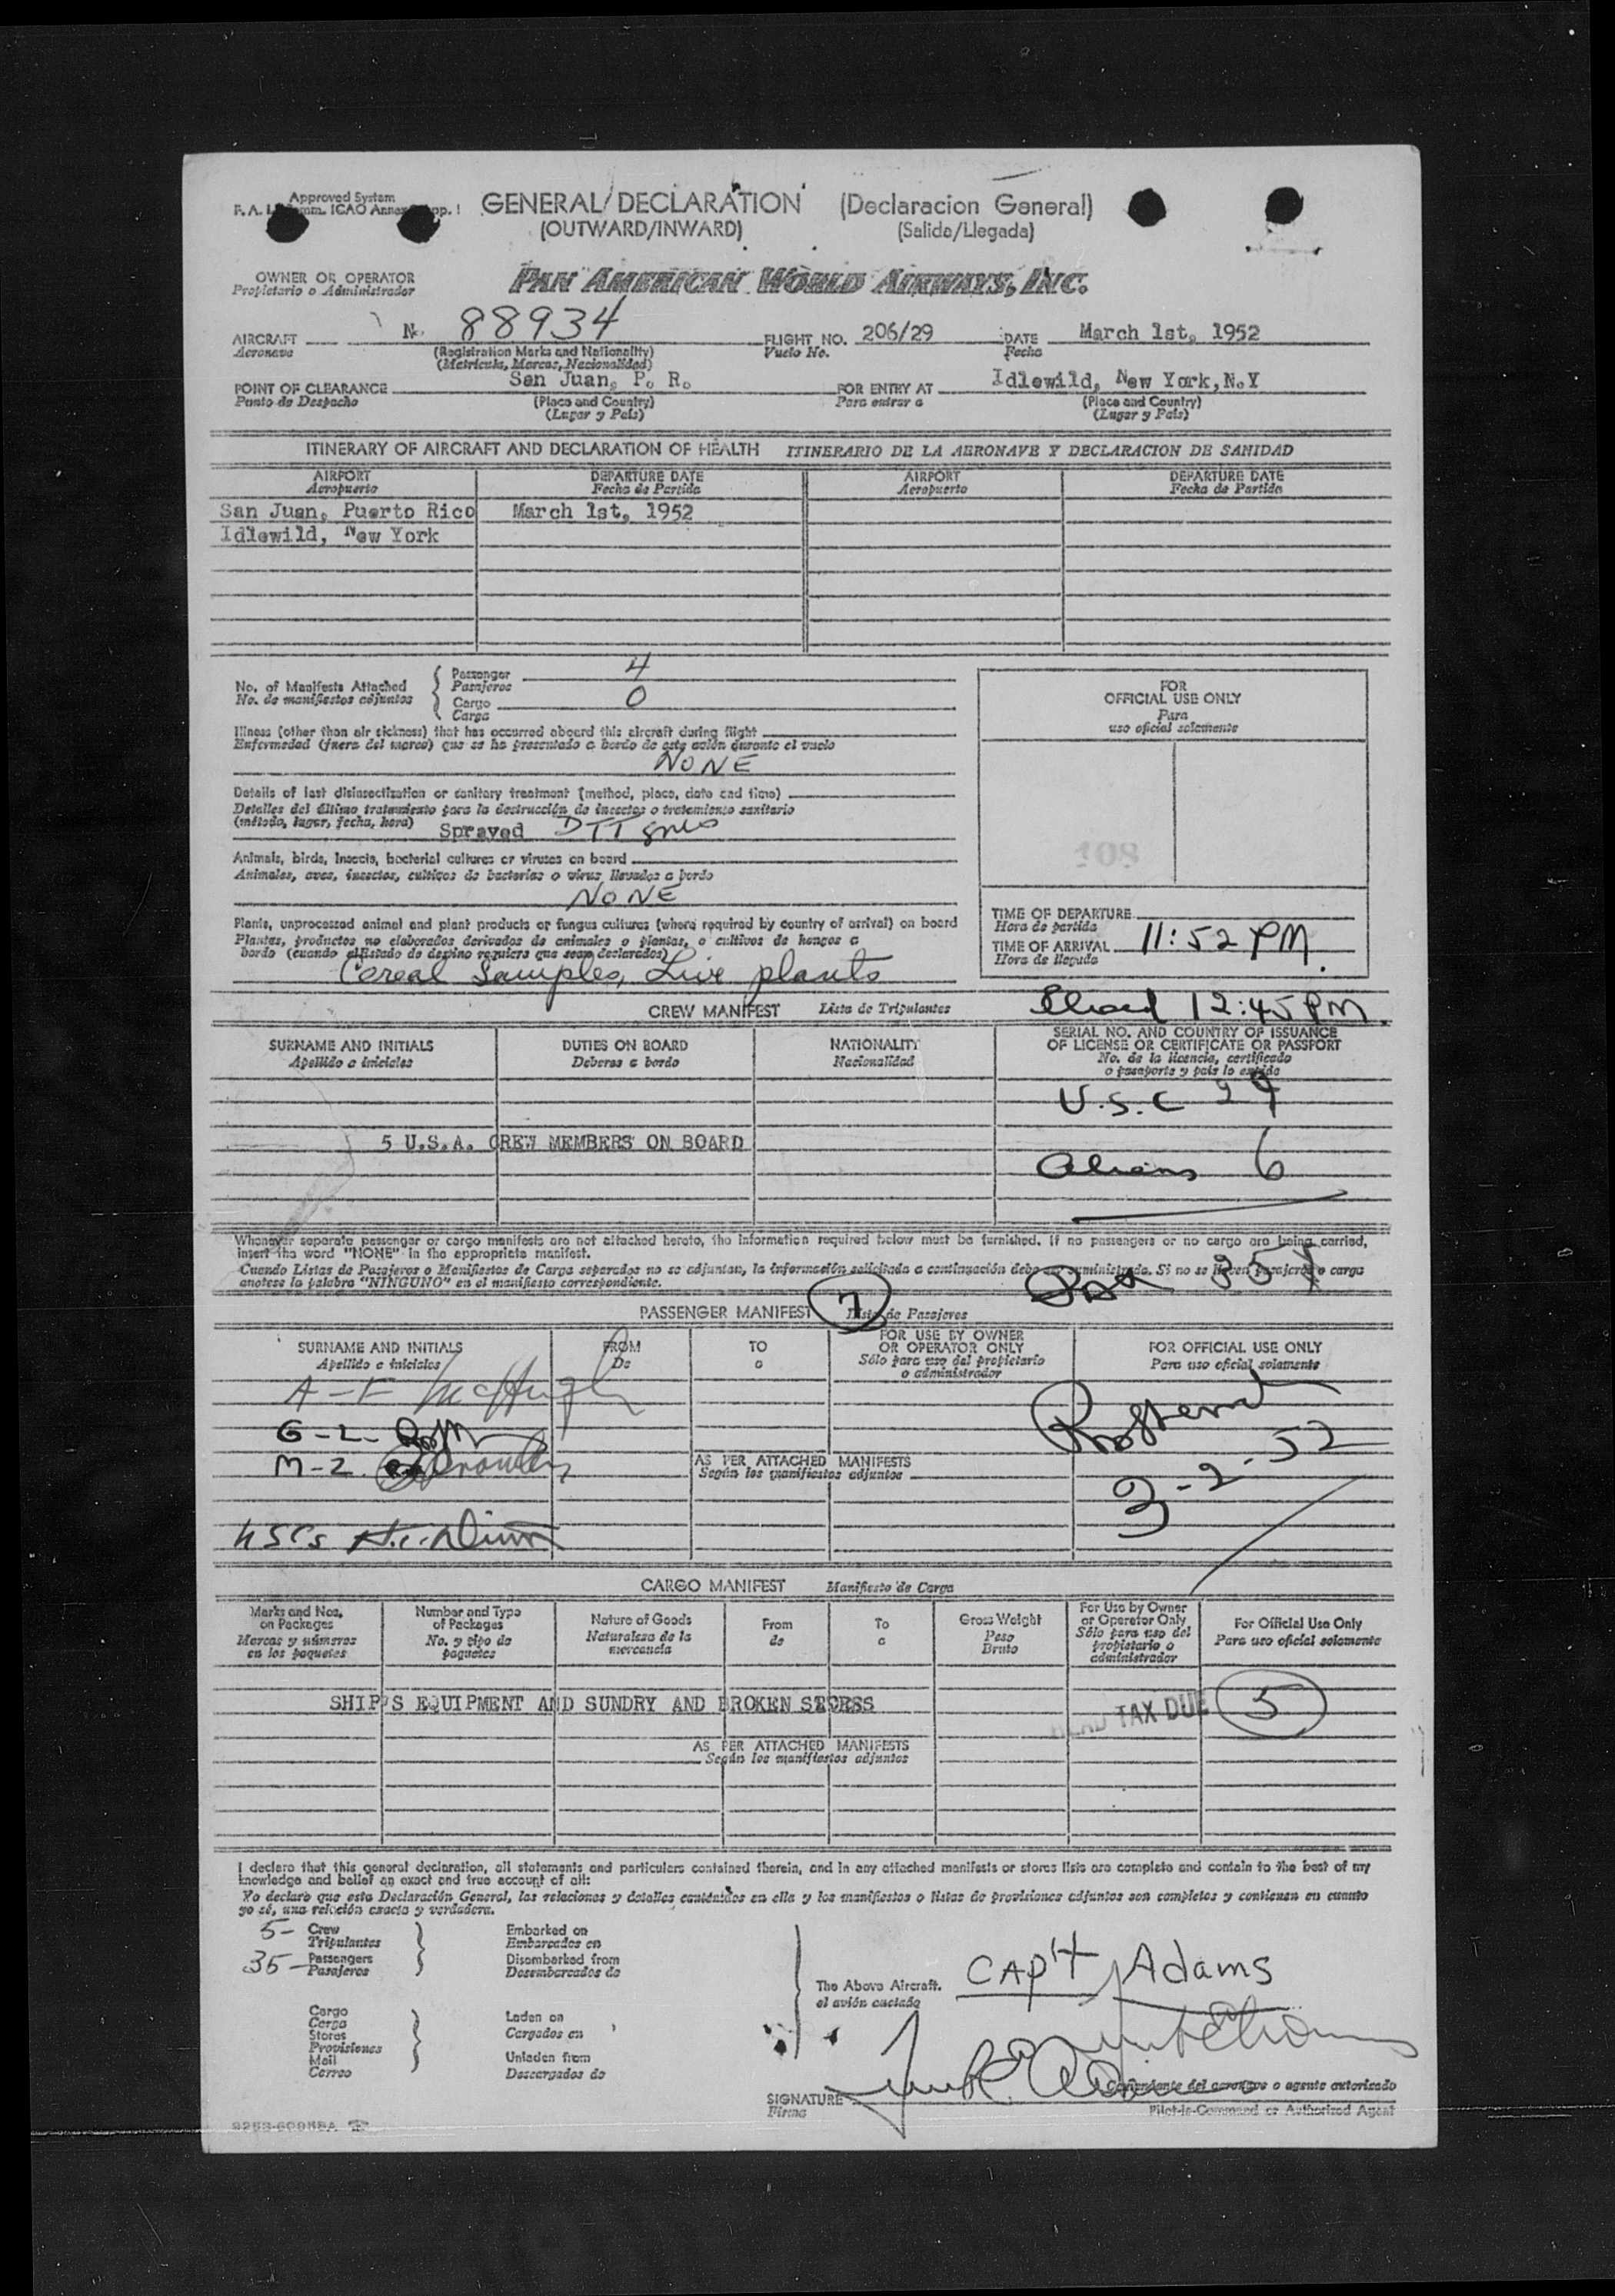 Approved System
GENERAL/DECLARATION (Declaracion General)
(OUTWARD/INWARD) (Salida/Llegada)
OWNER OR OPERATOR
Propietario o Administrador
PAN AMERICAN WORLD AIRWAYS, INC.
AIRCRAFT N 88934 FLIGHT NO. 206/29 DATE March 1st, 1952
Aeronave (Registration Marks and Nationality) Vuelo No. Fecha
(Matricula, Marcas, Nacionalidad)
POINT OF CLEARANCE San Juan, P. R. FOR ENTRY AT Idlewild, New York, N.Y
Punto de Despacho (Place and Country) Para entrar a (Place and Country)
(Lugar y País) (Lugar y País)
ITINERARY OF AIRCRAFT AND DECLARATION OF HEALTH ITINERARIO DE LA AERONAVE Y DECLARACION DE SANIDAD
AIRPORT DEPARTURE DATE AIRPORT DEPARTURE DATE
Aeropuerto Fecha de Partida Aeropuerto Fecha de Partida
San Juan, Puerto Rico March 1st, 1952
Idlewild, New York
No. of Manifests Attached
No. de manifiestos adjuntos
Passenger 4
Pasajeros
Cargo 0
Carga
Illness (other than air sickness) that has occurred aboard this aircraft during flight
Enfermedad (fuera del mareo) que se ha presentado a bordo de este avión durante el vuelo
NONE
Details of last disinsectization or sanitary treatment (method, place, date and time)
Detalles del último tratamiento para la destrucción de insectos o tratamiento sanitario
(método, lugar, fecha, hora) Sprayed DTT
Animals, birds, insects, bacterial cultures or viruses on board
Animales, aves, insectos, cultivos de bacterias o virus llevados a bordo
NONE
Plants, unprocessed animal and plant products or fungus cultures (where required by country of arrival) on board
Plantas, productos no elaborados derivados de animales o plantas, o cultivos de hongos a
bordo (cuando el Estado de destino requiera que sean declarados)
Cereal Samples, Live plants
FOR
OFFICIAL USE ONLY
Para
uso oficial solamente
108
TIME OF DEPARTURE
Hora de partida
TIME OF ARRIVAL 11:52 PM
Hora de llegada
12:45 PM
CREW MANIFEST Lista de Tripulantes
SURNAME AND INITIALS DUTIES ON BOARD NATIONALITY SERIAL NO. AND COUNTRY OF ISSUANCE
Apellido e iniciales Deberes a bordo Nacionalidad OF LICENSE OR CERTIFICATE OR PASSPORT
No. de la licencia, certificado
o pasaporte y país lo expide
U.S.C 29
5 U.S.A. CREW MEMBERS ON BOARD
Aliens 6
Whenever separate passenger or cargo manifests are not attached hereto, the information required below must be furnished. If no passengers or no cargo are being carried,
insert the word "NONE" in the appropriate manifest.
Cuando Listas de Pasajeros o Manifiestos de Carga separados no se adjuntan, la información solicitada a continuación debe ser suministrada. Si no se llevan pasajeros o carga
anotese la palabra "NINGUNO" en el manifiesto correspondiente.
PASSENGER MANIFEST 7 Lista de Pasajeros
SURNAME AND INITIALS FROM TO FOR USE BY OWNER FOR OFFICIAL USE ONLY
Apellido e iniciales De a OR OPERATOR ONLY Para uso oficial solamente
Sólo para uso del propietario
o administrador
A-F McHugh
G-L
M-Z
AS PER ATTACHED MANIFESTS
Según los manifiestos adjuntos
3-2-52
USCs
CARGO MANIFEST Manifiesto de Carga
Marks and Nos. on Packages
Marcas y números en los paquetes
Number and Type of Packages
No. y tipo de paquetes
Nature of Goods
Naturaleza de la mercancía
From
de
To
a
Gross Weight
Peso Bruto
For Use by Owner or Operator Only
Sólo para uso del propietario o administrador
For Official Use Only
Para uso oficial solamente
SHIP'S EQUIPMENT AND SUNDRY AND BROKEN STORES
HEAD TAX DUE 5
AS PER ATTACHED MANIFESTS
Según los manifiestos adjuntos
I declare that this general declaration, all statements and particulars contained therein, and in any attached manifests or stores lists are complete and contain to the best of my
knowledge and belief an exact and true account of all:
Yo declaro que esta Declaración General, las relaciones y detalles contenidos en ella y los manifiestos o listas de provisiones adjuntos son completos y contienen en cuanto
yo sé, una relación exacta y verdadera.
5- Crew Embarked on
Tripulantes Embarcados en
35- Passengers Disembarked from
Pasajeros Desembarcados de
The Above Aircraft.
el avión enclado
CAP't Adams
Cargo
Carga Laden on
Stores Cargados en
Provisiones
Mail Unladen from
Correo Descargados de
SIGNATURE
Firma
Comandante del aeronave o agente autorizado
Pilot-in-Command or Authorized Agent